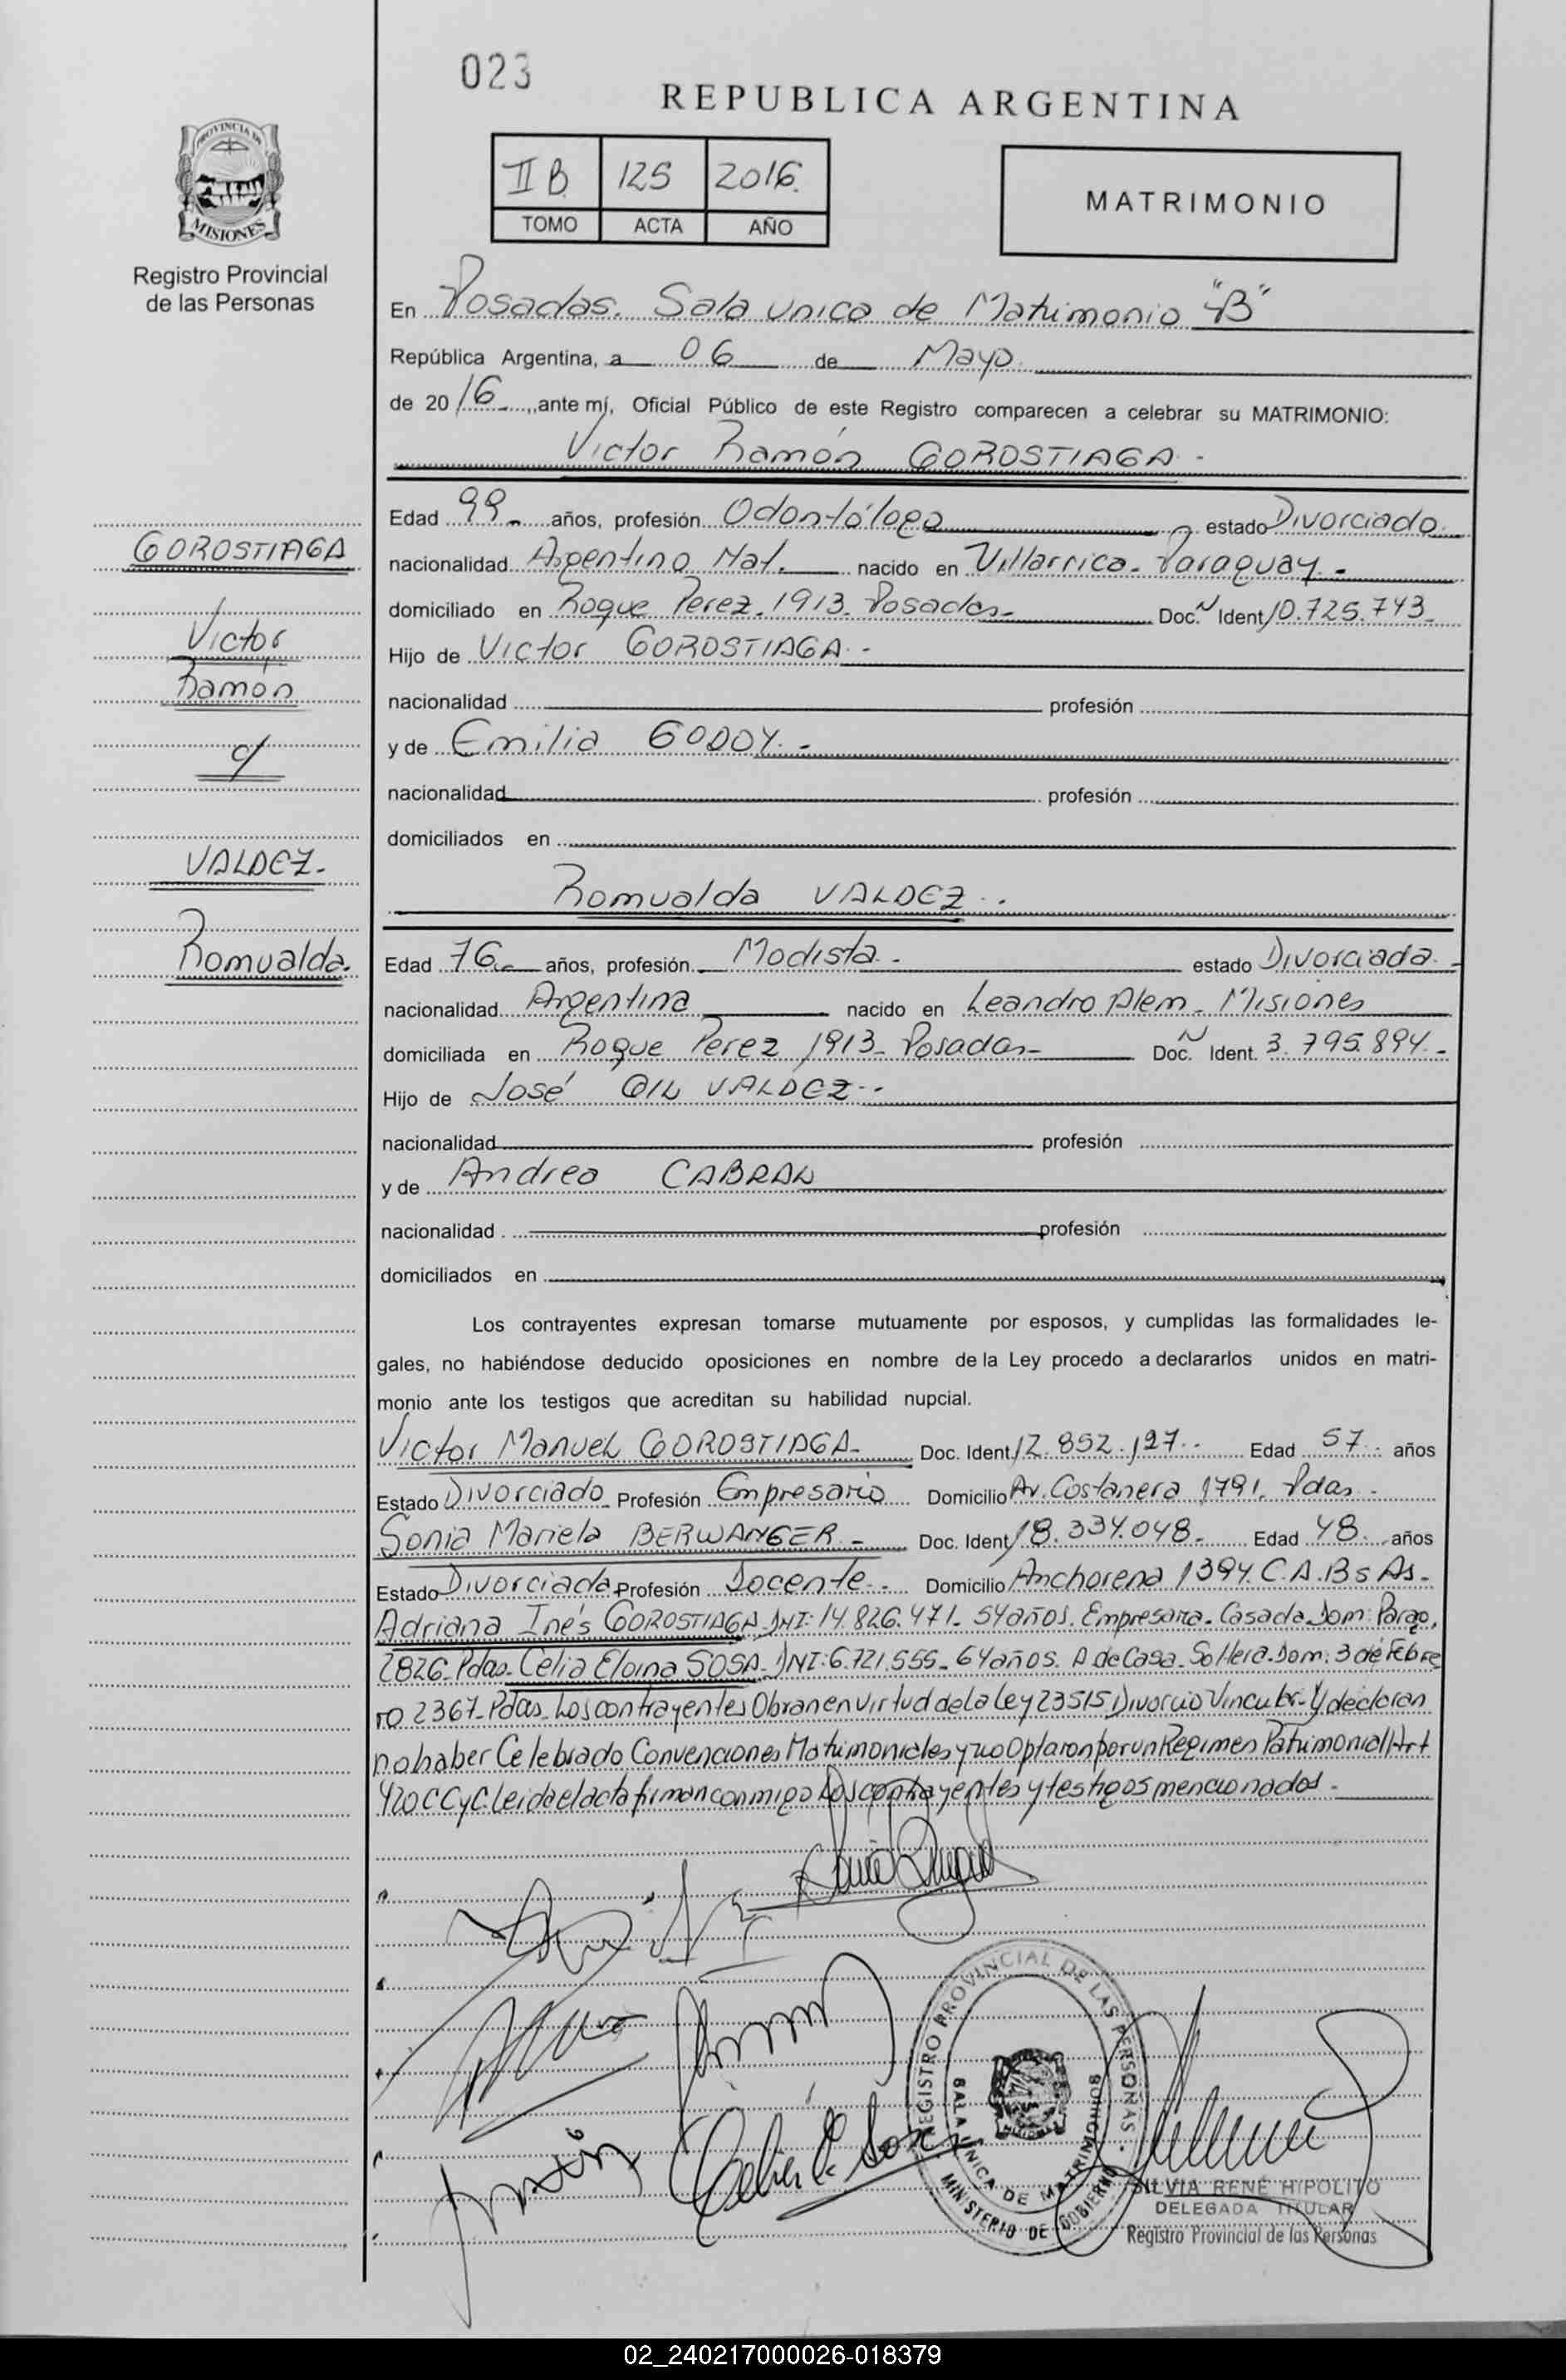 023
REPUBLICA ARGENTINA
II B. 125 2016.
TOMO ACTA AÑO
MATRIMONIO
PROVINCIA DE
MISIONES
Registro Provincial
de las Personas
En Posadas. Sala unica de Matrimonio "B"
República Argentina, a 06 de Mayo.
de 2016, ante mí, Oficial Público de este Registro comparecen a celebrar su MATRIMONIO:
Victor Ramón GOROSTIAGA -
GOROSTIAGA
Victor
Ramón
c/
VALDEZ.
Romualda.
Edad 99 años, profesión Odontólogo estado Divorciado
nacionalidad Argentino Nat. nacido en Villarrica - Paraguay -
domiciliado en Roque Perez. 1913. Posadas - Doc. N Ident 10.725.743
Hijo de Victor GOROSTIAGA. -
nacionalidad profesión
y de Emilia GODOY. -
nacionalidad profesión
domiciliados en
Romualda VALDEZ. .
Edad 76 años, profesión Modista. - estado Divorciada.
nacionalidad Argentina nacido en Leandro Alem - Misiones
domiciliada en Roque Perez 1913 - Posadas - Doc. N Ident. 3.795.894 -
Hijo de José GIL VALDEZ. -
nacionalidad profesión
y de Andrea CABRAL
nacionalidad profesión
domiciliados en
Los contrayentes expresan tomarse mutuamente por esposos, y cumplidas las formalidades le-
gales, no habiéndose deducido oposiciones en nombre de la Ley procedo a declararlos unidos en matri-
monio ante los testigos que acreditan su habilidad nupcial.
Victor Manuel GOROSTIAGA - Doc. Ident 12.852.127. Edad 57 años
Estado Divorciado Profesión Empresario Domicilio Av. Costanera 1791. Pdas -
Sonia Mariela BERWANGER - Doc. Ident 18.334.048 - Edad 48 años
Estado Divorciada Profesión Docente - Domicilio Anchorena 1394. C.A. Bs As -
Adriana Inés GOROSTIAGA - DNI: 14.826.471 - 54 años. Empresaria - Casada. Dom:
2826 - Pdas - Celia Eloina SOSA - DNI: 6.721.555 - 64 años. A de Casa - Soltera - Dom. 3 de Febre
ro 2367 - Pdas - Los contrayentes Obran en virtud de la Ley 23515 Divorcio Vincular - y declaran
no haber Celebrado Convenciones Matrimoniales y no Optaron por un Regimen Patrimonial Art
420 CCyC. leida el acta firman conmigo los contrayentes y testigos mencionados -
REGISTRO PROVINCIAL DE LAS PERSONAS
SALA UNICA DE MATRIMONIOS
MINISTERIO DE GOBIERNO
SILVIA RENÉ HIPOLITO
DELEGADA TITULAR
Registro Provincial de las Personas
02_240217000026-018379